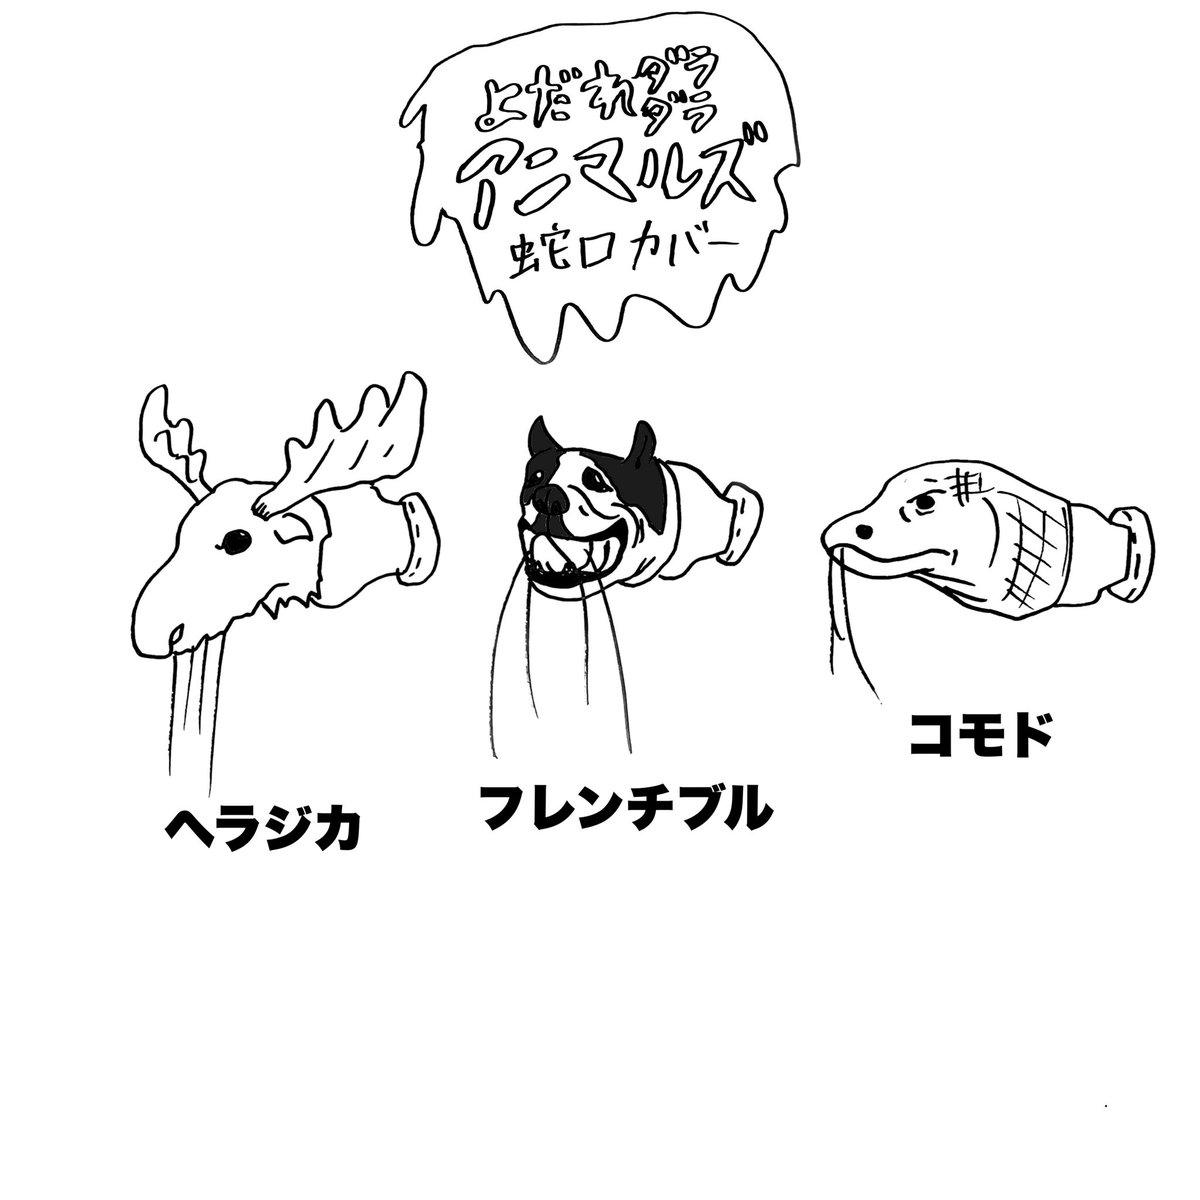 よだれダラダラ
アニマルズ
蛇口カバー
ヘラジカ
フレンチブル
コモド